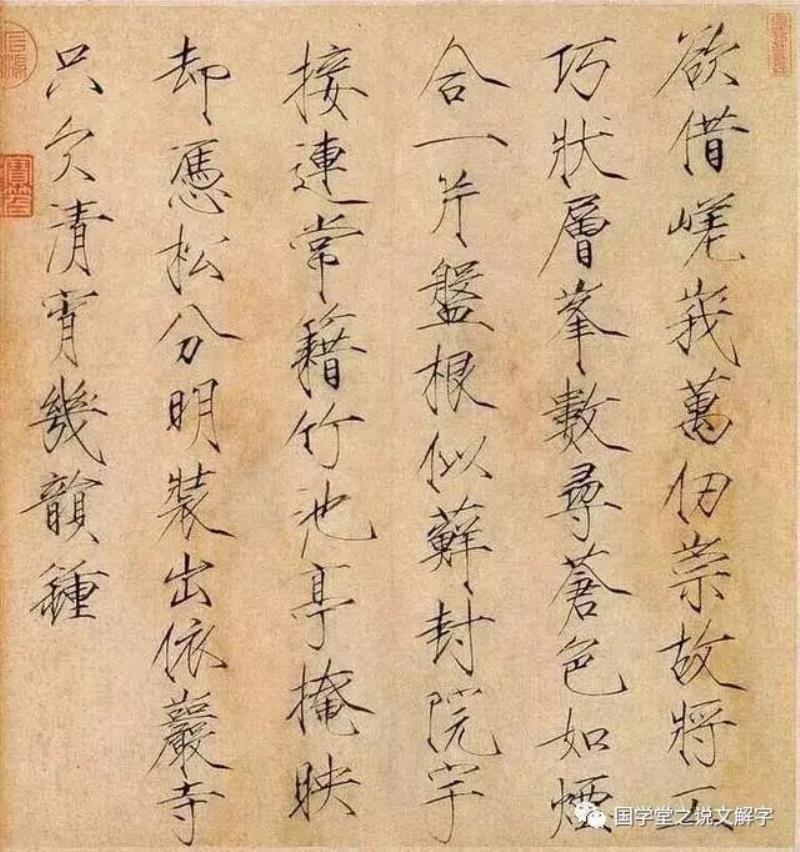 欲借嵯峩萬仞崇故將工
巧狀層峯數尋蒼色如煙
合一片盤根似蘚封院宇
接連常籍竹池亭掩映
却憑松分明裝出依巖寺
只欠清宵幾韻鍾
国学堂之说文解字